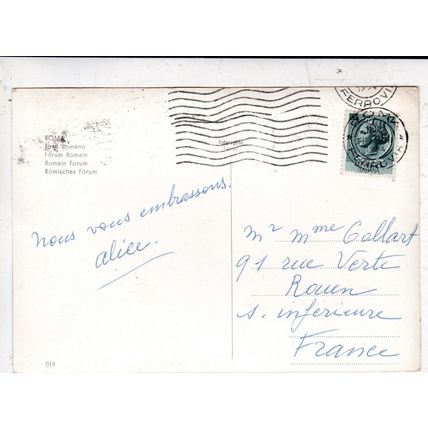 ROMA
Foro Romano
Forum Romain
Roman Forum
Römisches Forum
Nous vous embrassons.
Alice.
FERROVI
ROMA
Mr Mme Gallart
91 rue Verte
Rouen
S. inférieure
France
018